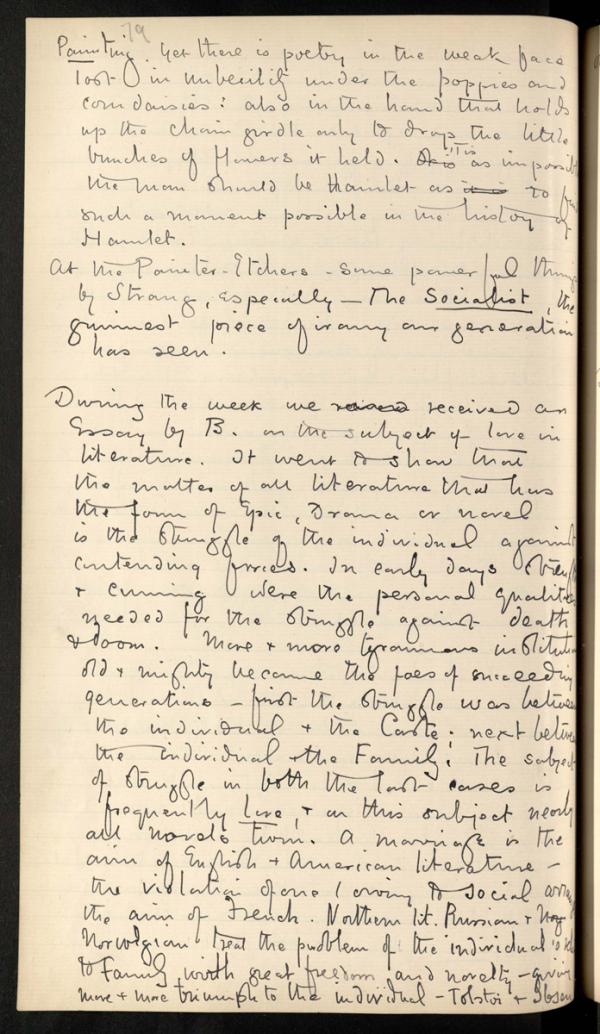 79
Painting. Yet there is poetry in the weak face
lost in imbecility under the poppies and
corndaisies: also in the hand that holds
up the chain girdle only to drops the little
bunches of flowers it held. It is as impossible
the man should be Hamlet as it is to find
such a moment possible in the history of
Hamlet.
At the Painter-Etchers - some powerful things
by Strang, especially - The Socialist, the
grimmest piece of irony our generation
has seen.
During the week we received an
Essay by B. on the subject of love in
literature. It went to show that
the matter of all literature that has
the form of Epic, Drama or novel
is the struggle of the individual against
contending forces. In early days strength
+ cunning were the personal qualities
needed for the struggle against death
+ doom. More + more tyrannous institutions
old + mighty became the foes of succeeding
generations - first the struggle was between
the individual + the Caste; next between
the individual + the Family. The subject
of struggle in both the last cases is
frequently love, + on this subject nearly
all novels turn. A marriage is the
aim of English + American literature -
the violation of one (owing to social
the aim of French. Northern lit. Russian + Nor
Norwegian treat the problem of the individual
to Family with great freedom and novelty - giving
more + more triumph to the individual - Tolstoi + Ibsen